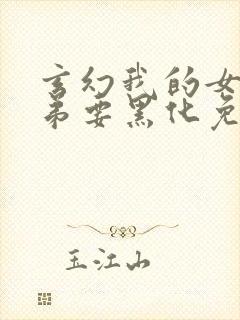 玄幻我的女
弟要黑化免
玉江山